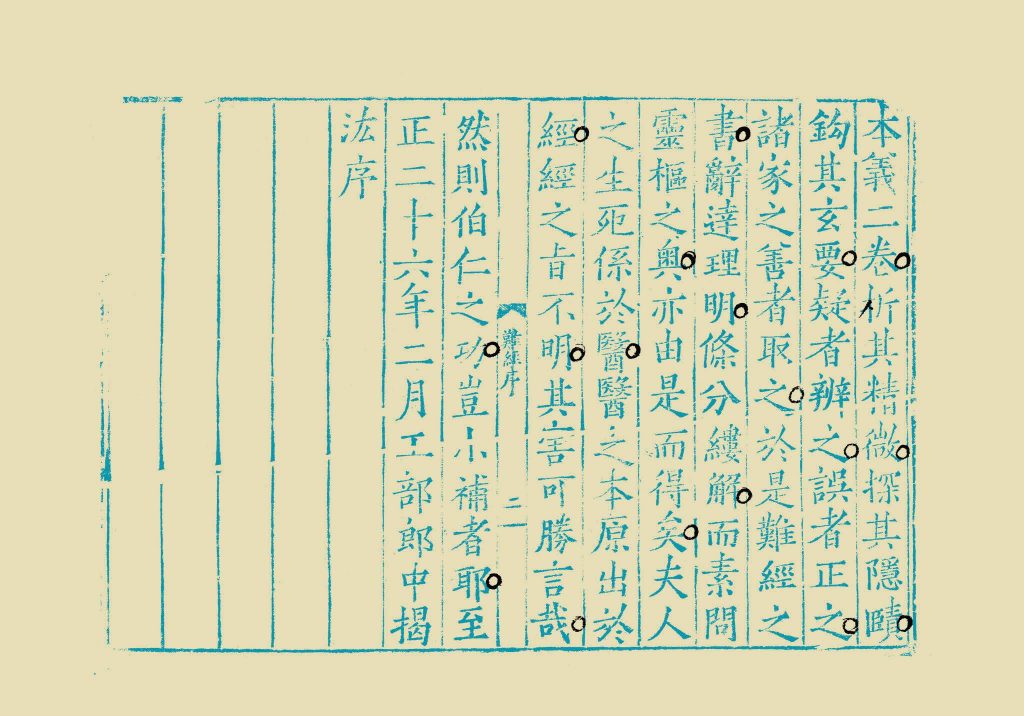 本義二卷析其精微探其隱賾
鈎其玄要疑者辨之誤者正之
諸家之善者取之於是難經之
書辭達理明條分縷解而素問
靈樞之奧亦由是而得矣夫人
之生死係於醫醫之本原出於
經經之旨不明其害可勝言哉
難經序
二
然則伯仁之功豈小補者耶至
正二十六年二月工部郎中揭
汯序